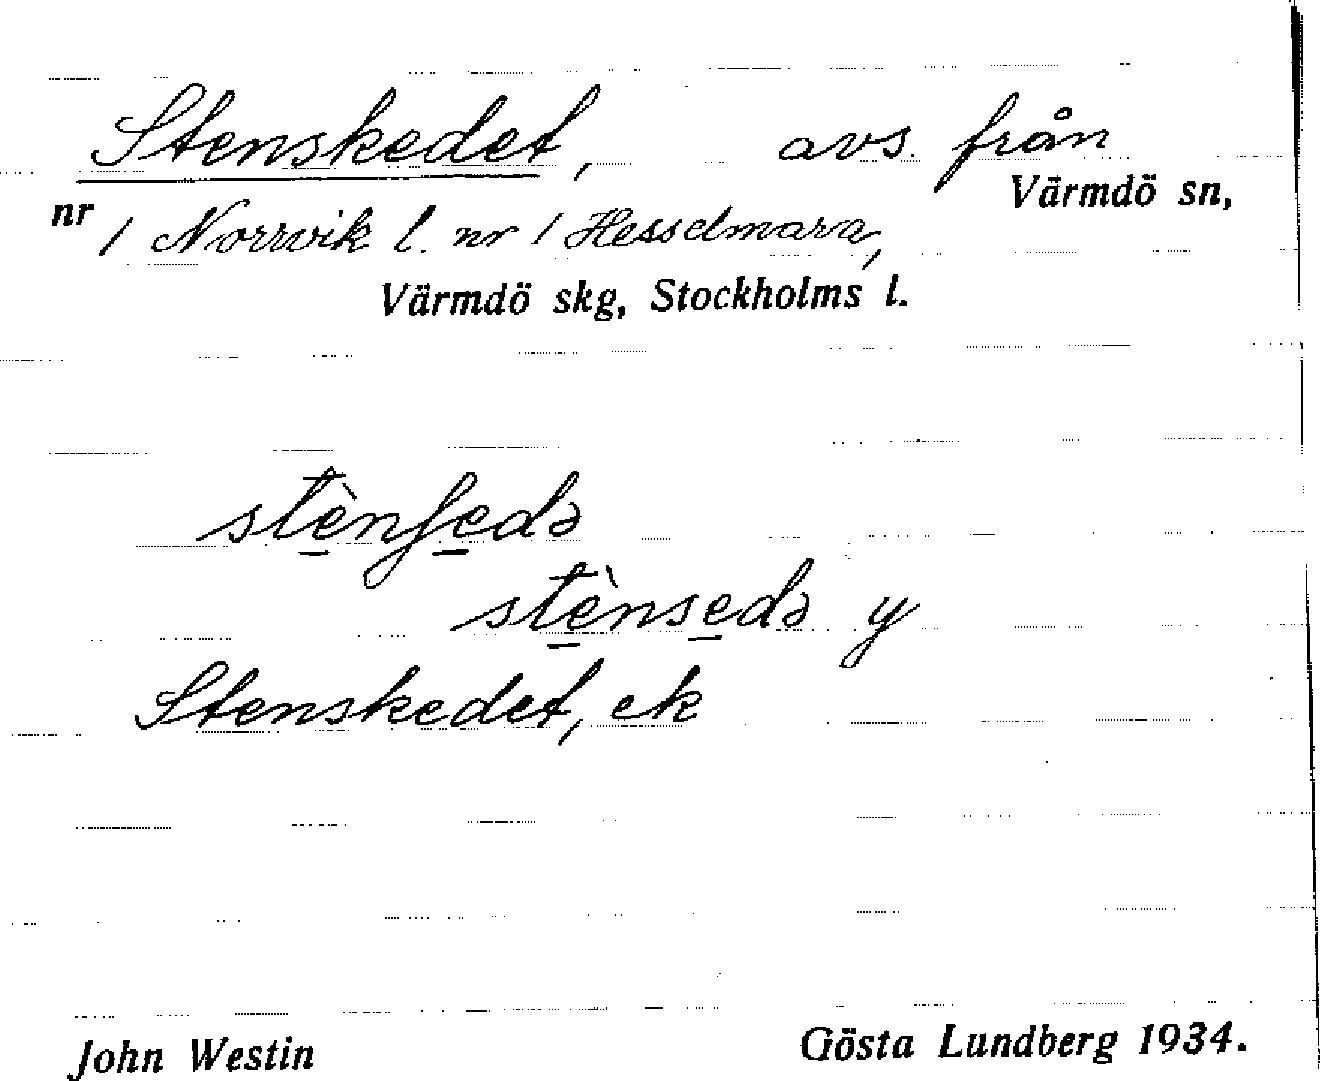 Stenskedet, avs. från
Värmdö sn,
nr 1 Norrvik l. nr 1 Hesselmara,
Värmdö skg, Stockholms l.
stènʃedə
stènsedə y
Stenskedet, ek
John Westin
Gösta Lundberg 1934.